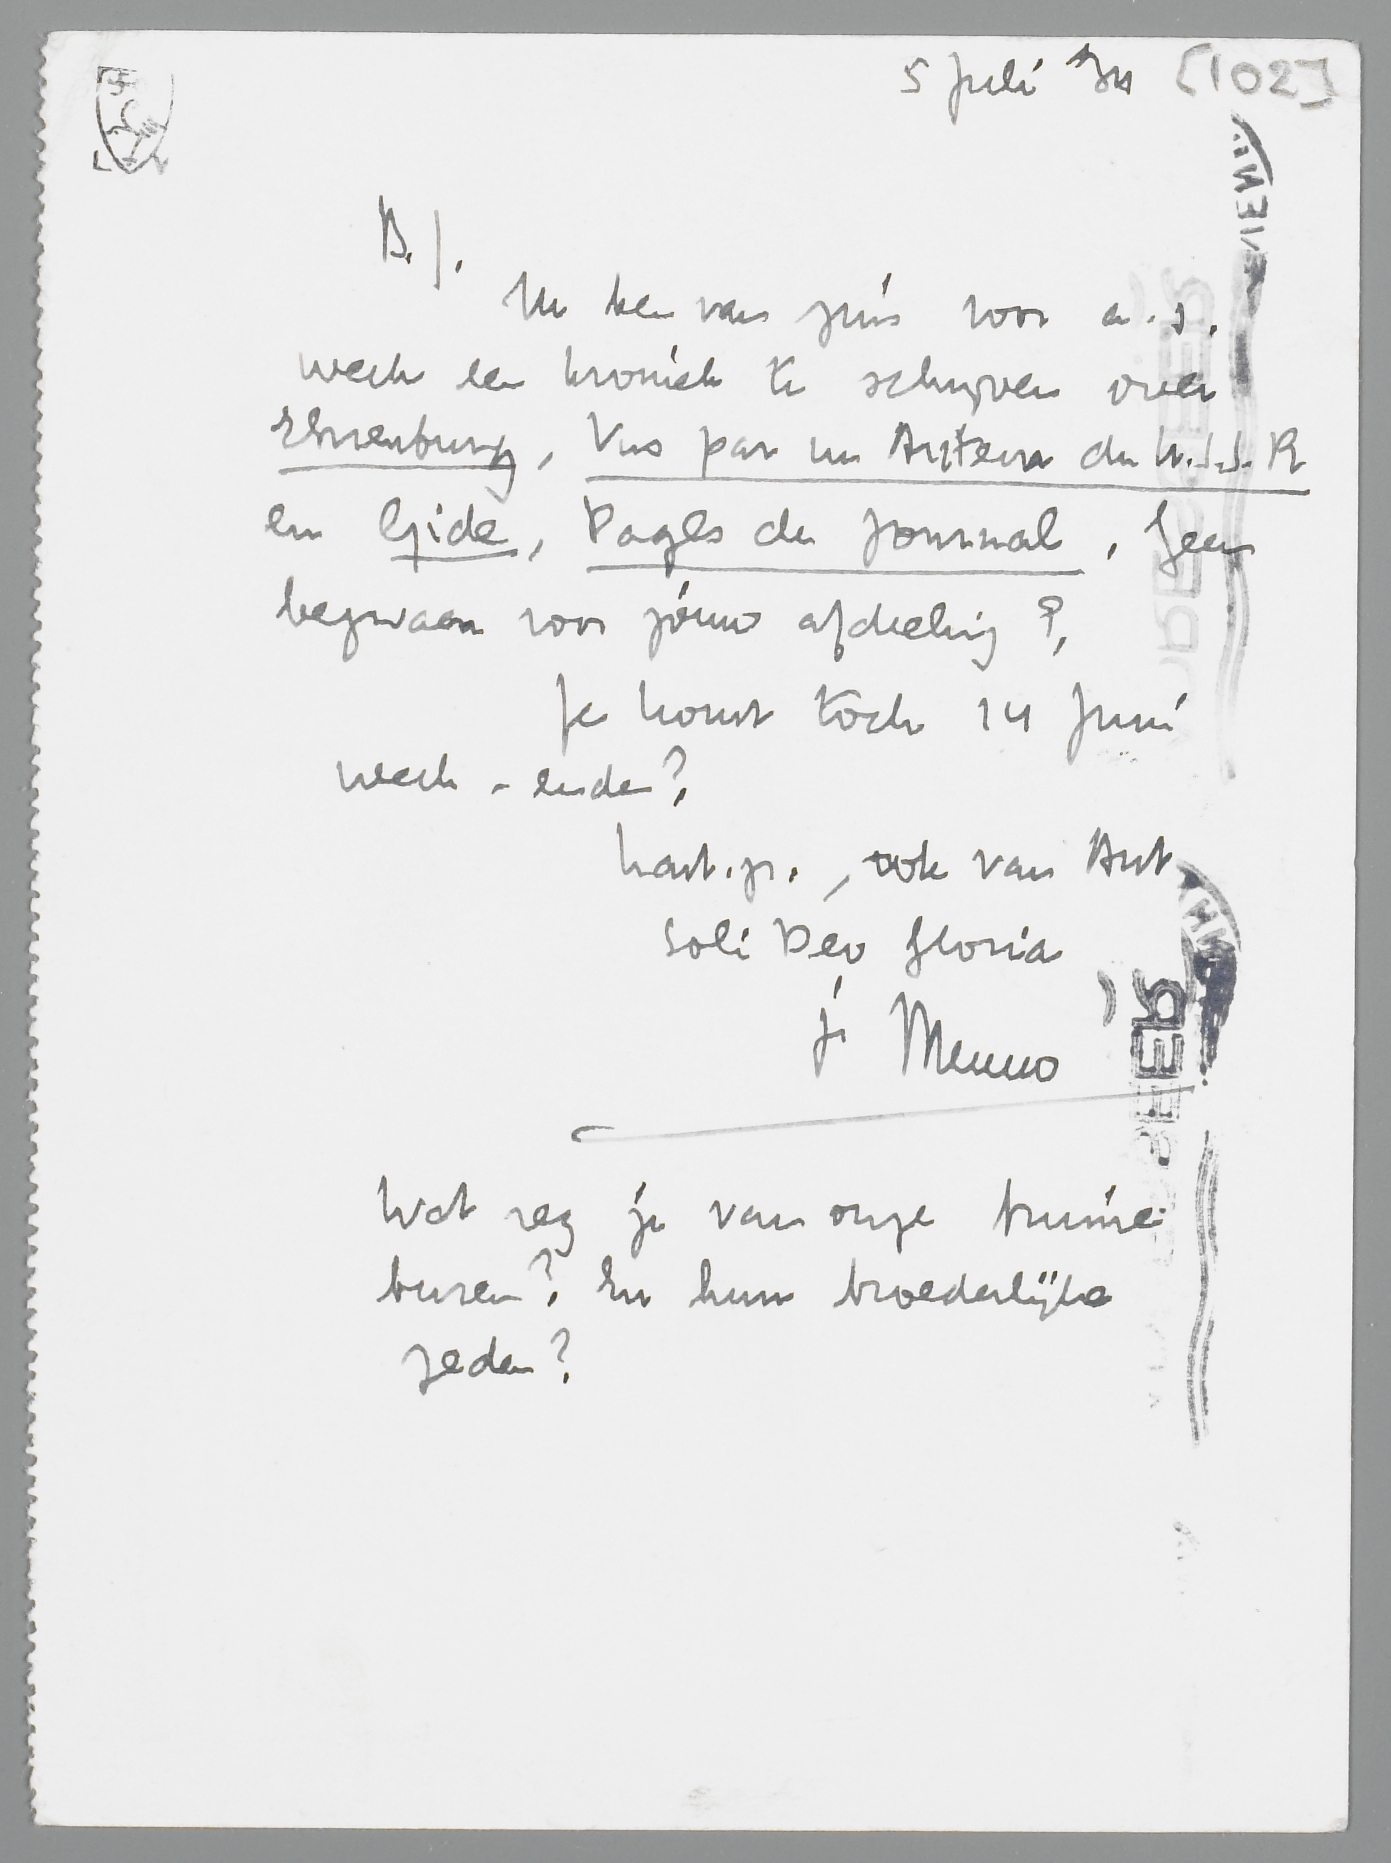 5 Juli '34 [102]
B. J.
Ik ben van zins voor a.s.
week een kroniek te schrijven over
Ehrenburg, Vus par un Auteur du U.S.S.R
en Gide, Pages de Journal, Geen
bezwaar voor jóuw afdeeling?
Je komt toch 14 Juni
week-enden?
hart. gr., ook van Ant
Soli Deo Gloria
je Menno
Wat zeg je van onze bruine
buren? En hun broederlijke
zeden?